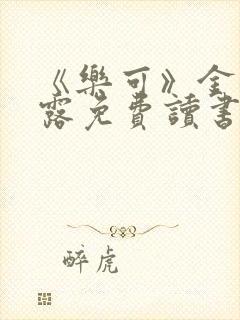 《樂可》金
露免費讀書
醉虎